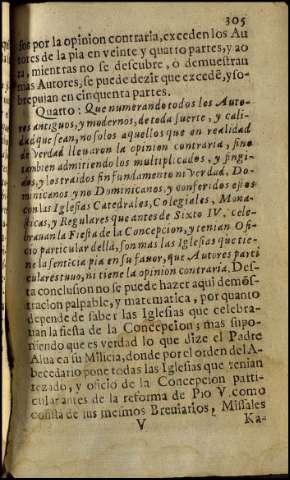 305
sos por la opinion contraria, exceden los Au
tores de la pia en veinte y quatro partes, y ao
ra, mientras no se descubre, o demuestran
mas Autores, se puede dezir que excedẽ, y so-
brepujan en cinquenta partes.
Quarto: Que numerando todos los Auto-
res antiguos, y modernos, de toda suerte, y cali-
dad que sean, no solo aquellos que en realidad
de verdad lleuaron la opinion contraria, sino
tambien admitiendo los multiplicados, y fingi-
dos, y los traidos sin fundamento ni verdad, Do-
minicanos y no Dominicanos, y conferidos estos
con las Iglesias Catedrales, Colegiales, Mona-
sticas, y Regulares que antes de Sixto IV. cele-
brauan la Fiesta de la Concepcion, y tenian Ofi-
cio particular della, son mas las Iglesias que tie-
nẽ la sentẽcia pia en su fauor, que Autores parti
culares tuuo, ni tiene la opinion contraria. Des-
ta conclusion no se puede hazer aqui demos-
tracion palpable, y matematica, por quanto
depende de saber las Iglesias que celebra-
uan la fiesta de la Concepcion; mas supo-
niendo que es verdad lo que dize el Padre
Alua en su Milicia, donde por el orden del A-
becedario pone todas las Iglesias que tenian
rezado, y oficio de la Concepcion parti-
cular antes de la reforma de Pio V. como
consta de sus mesmos Breuiarios, Missales
V
Ka-